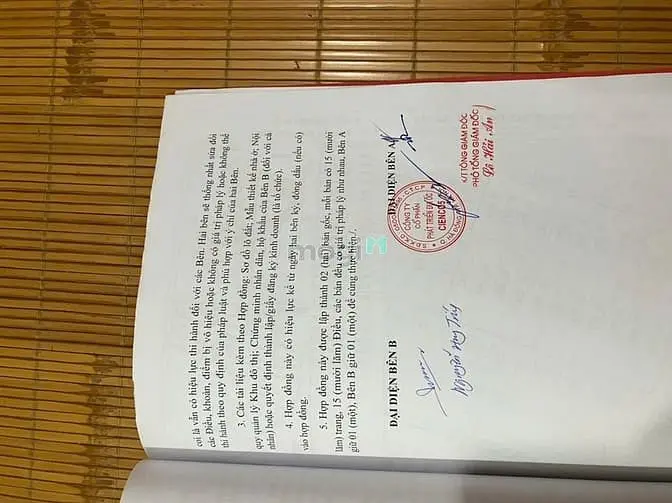 coi là vẫn có hiệu lực thi hành đối với các Bên. Hai bên sẽ thống nhất sửa đổi
các Điều, khoản, điểm bị vô hiệu hoặc không có giá trị pháp lý hoặc không thể
thi hành theo quy định của pháp luật và phù hợp với ý chí của hai Bên.
3. Các tài liệu kèm theo Hợp đồng: Sơ đồ lô đất; Mẫu thiết kế nhà ở; Nội
quy quản lý Khu đô thị; Chứng minh nhân dân, hộ khẩu của Bên B (đối với cá
nhân) hoặc quyết định thành lập/giấy đăng ký kinh doanh (là tổ chức).
4. Hợp đồng này có hiệu lực kể từ ngày hai bên ký, đóng dấu (nếu có)
vào hợp đồng.
5. Hợp đồng này được lập thành 02 (hai) bản gốc, mỗi bản có 15 (mười
lăm) trang, 15 (mười lăm) Điều, các bản đều có giá trị pháp lý như nhau, Bên A
giữ 01 (một), Bên B giữ 01 (một) để cùng thực hiện./.
ĐẠI DIỆN BÊN B
ĐẠI DIỆN BÊN A
CÔNG TY
CỔ PHẦN
PHÁT TRIỂN ĐỊA ỐC
CIENCO5
Nguyễn Huy
KT.TỔNG GIÁM ĐỐC
PHÓ TỔNG GIÁM ĐỐC
Lê Hải An